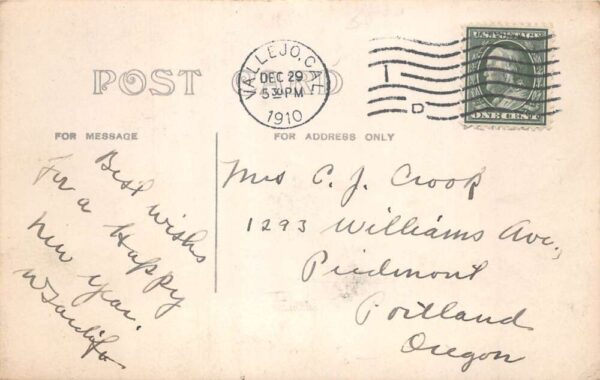 POST CARD
VALLEJO, CAL.
DEC 29
5 30 PM
1910
1
D
U.S. POSTAGE
ONE CENT
FOR MESSAGE
FOR ADDRESS ONLY
Best wishes
For a Happy
New Year.
Mrs C. J. Crook
1293 Williams Ave,
Piedmont
Portland
Oregon